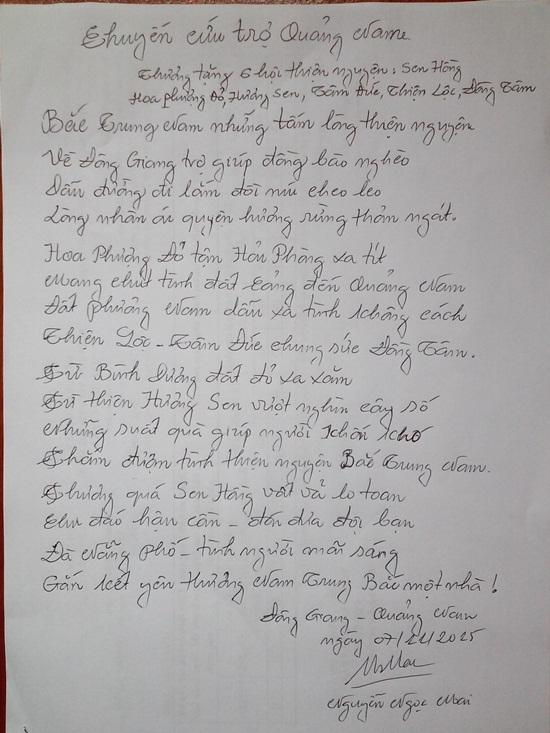 Chuyến cứu trợ Quảng Nam
Thương tặng 6 hội thiện nguyện: Sen Hồng
Hoa phượng đỏ, Hương sen, Tâm Đức, Thiện Lộc, Đồng Tâm
Bắc Trung Nam những tấm lòng thiện nguyện
Về Đông Giang trợ giúp đồng bào nghèo
Dẫu đường đi lắm đồi núi cheo leo
Lòng nhân ái quyện hương rừng thơm ngát.
Hoa Phượng Đỏ tận Hải Phòng xa tít
Mang chút tình đất Cảng đến Quảng Nam
Đất phương Nam dẫu xa tình không cách
Thiện Lộc - Tâm Đức chung sức Đồng Tâm.
Từ Bình Dương đất đỏ xa xăm
Từ thiện Hương Sen vượt nghìn cây số
Những suất quà giúp người khốn khó
Thắm đượm tình thiện nguyện Bắc Trung Nam.
Thương quá Sen Hồng vất vả lo toan
Chu đáo hậu cần - đón đưa đội bạn
Đà Nẵng phố - tình người mãi sáng
Gắn kết yêu thương Nam Trung Bắc một nhà!
Đông Giang - Quảng Nam
ngày 07/11/2025
Nguyễn Ngọc Mai